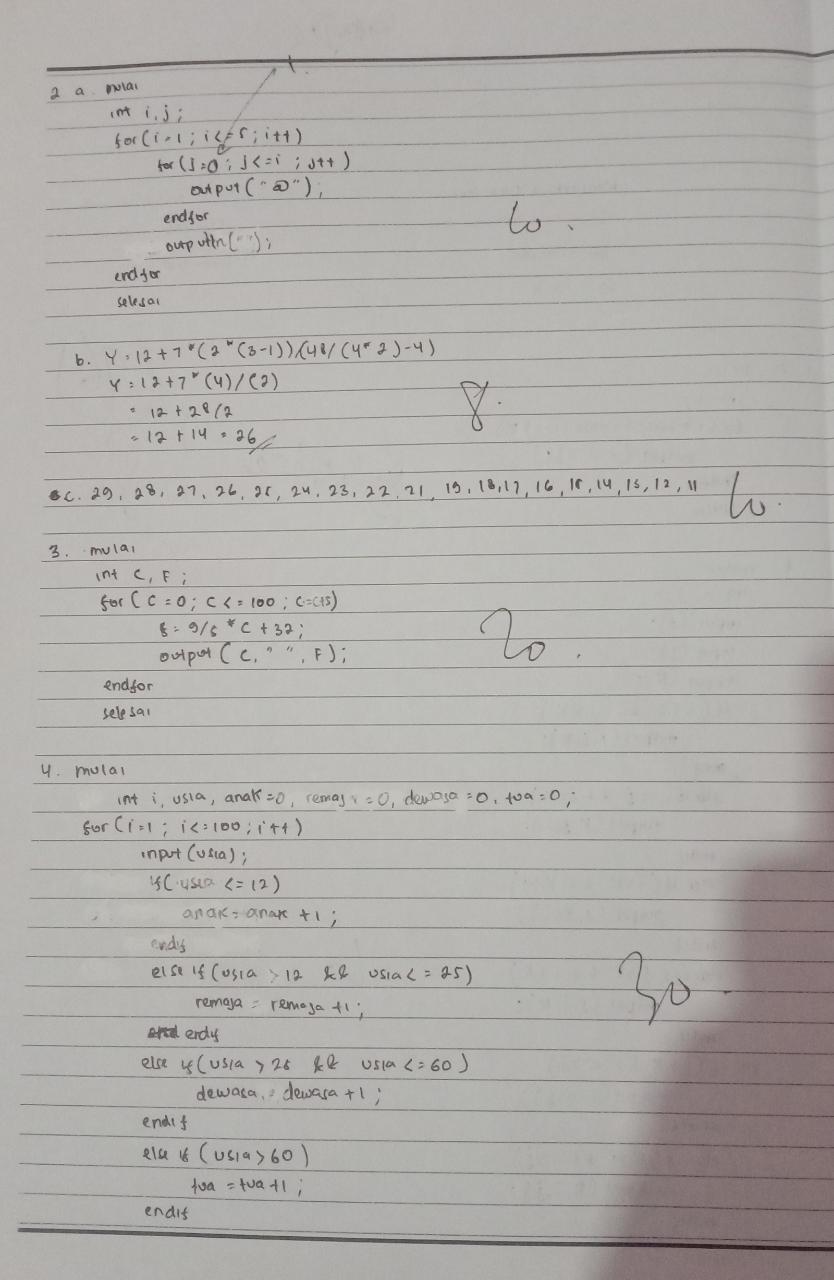 1.
2 a. mulai
int i, j;
for (i=1; i<=5; i++)
for (j=0; j<=i; j++)
output ("@");
endfor
outputln(" ");
endfor
selesai
10.
b. Y = 12 + 7 * (2 * (3-1))/(48/(4*2)-4)
Y = 12 + 7 * (4) / (2)
= 12 + 28/2
= 12 + 14 = 26
8.
c. 29, 28, 27, 26, 25, 24, 23, 22, 21, 19, 18, 17, 16, 15, 14, 13, 12, 11
10.
3. mulai
int C, F;
for (C = 0; C <= 100; C=C+5)
f = 9/5 * C + 32;
output (C, " ", F);
endfor
selesai
20.
4. mulai
int i, usia, anak=0, remaja=0, dewasa=0, tua=0;
for (i=1; i<=100; i++)
input (usia);
if (usia <= 12)
anak = anak + 1;
endif
else if (usia > 12 && usia <= 25)
remaja = remaja +1;
endif
else if (usia > 25 && usia <= 60)
dewasa = dewasa +1;
endif
else if (usia > 60)
tua = tua +1;
endif
30.